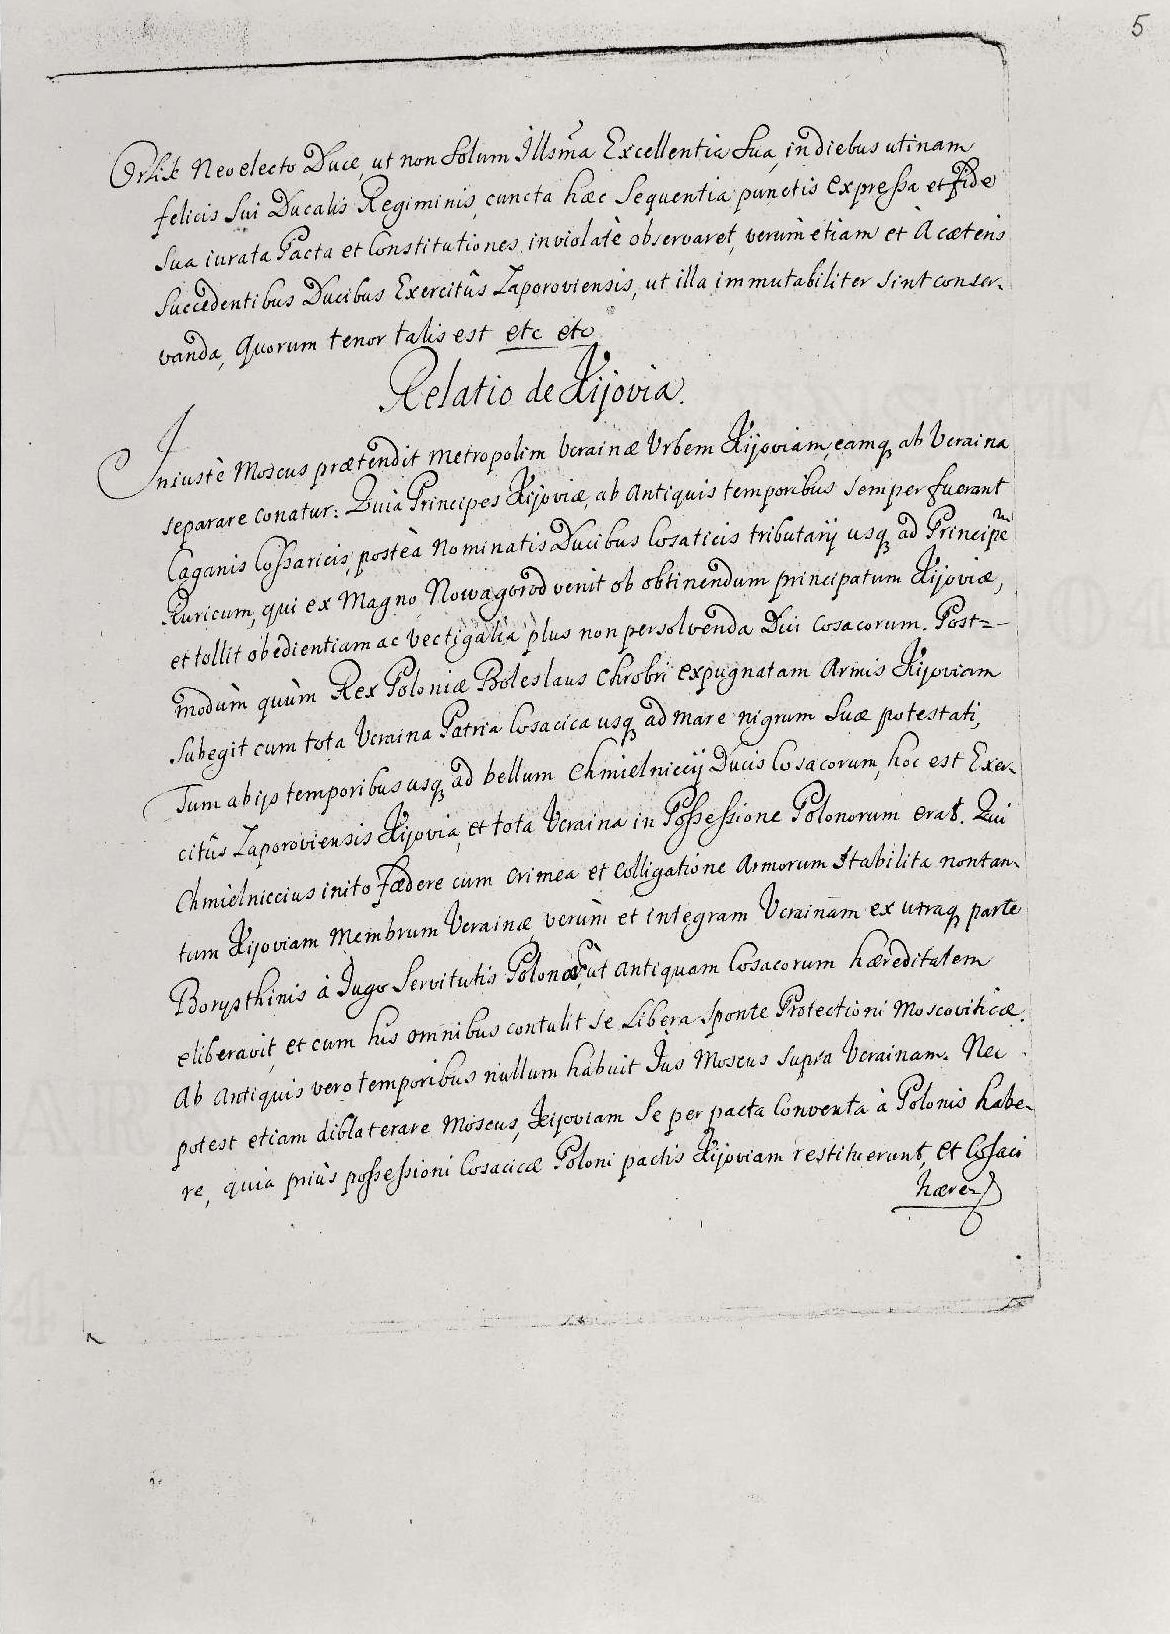 5
Orlik Neoelecto Duce, ut non solum Illsm̃a Excellentia Sua, in diebus utinam
felicis sui Ducalis Regiminis, cuncta hæc sequentia punctis expressa et fide
sua iurata Pacta et Constitutiones inviolatè observaret, verùm etiam et À cæteris
succedentibus Ducibus Exercitûs Zaporoviensis, ut illa immutabiliter sint conser-
vanda, Quorum tenor talis est etc etc
Relatio de Kijovia.
Iniustè Moscus prætendit metropolim Ucrainæ Urbem Kijoviam, eamq, ab Ucraina
separare conatur: Quia Principes Kijoviæ, ab Antiquis temporibus semper fuerant
Caganis Cossaricis, posteà Nominatis Ducibus Cosaticis tributarij usq, ad Principe͂m
Ruricum, qui ex Magno Nowagorod venit ob obtinendum principatum Kijoviæ,
et tollit obedientiam ac vectigalia plus non persolvenda Duci Cosacorum. Post=
modùm quùm Rex Poloniæ Boleslaus Chrobri expugnatam Armis Kijoviam
subegit cum tota Ucraina Patria Cosacica usq, ad mare nigrum suæ potestati,
Tum ab ijs temporibus usq, ad bellum Chmielniccij Ducis Cosacorum, hoc est Exer-
citûs Zaporoviensis Kijovia, et tota Ucraina in Possessione Polonorum erat. Qui
Chmielniccius inito fædere cum Crimea et Colligatione Armorum stabilita non tan-
tum Kijoviam Membrum Ucrainæ, verùm et integram Ucrainam ex utraq, parte
Borysthinis à Jugo Servitutis Polonoꝝ, ut Antiquam Cosacorum hæreditatem
eliberavit, et cum his omnibus contulit se Libera sponte Protectioni Moscoviticæ.
Ab Antiquis vero temporibus nullum habuit Jus Moscus supra Ucrainam. Nec
potest etiam diblaterare Moscus, Kijoviam se per pacta Conventa à Polonis habe-
re, quia priùs possessioni Cosacicæ Poloni pactis Kijoviam restituerunt, et Cosaci
hære